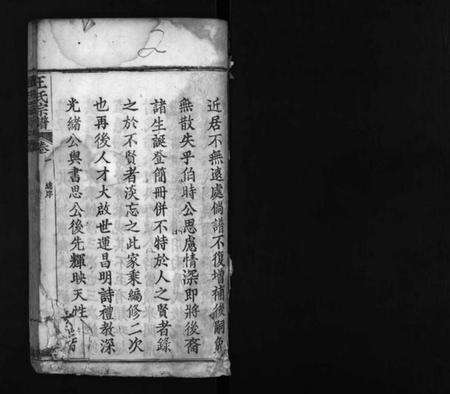 近居不無遠處倘譜不復增補後嗣
無散失乎伯時公思處情深即將後裔
諸生誕登簡冊併不特於人之賢者錄
之於不賢者淡忘之此家乘編修二次
也再後人才大啟世運昌明詩禮教深
光緒公與書思公後先輝映天性
王氏宗譜
卷一